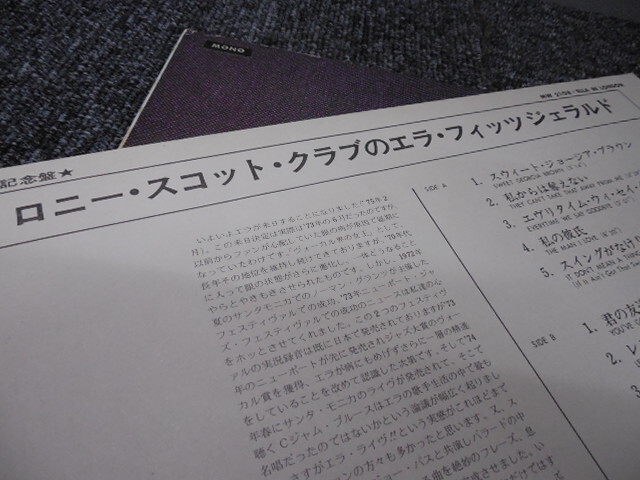 MONO
ELLA IN LONDON
記念盤★
ロニー・スコット・クラブのエラ・フィッツジェラルド
いよいよエラが来日することになりました('75年2
月)。この来日決定は実際は'73年の6月だったのですが、
以前からファンが心配していた眼の病が原因で延期に
なっていたわけです。"ヴォーカル界の女王"として、
長年その地位を維持し続けてきておりますが、'70年代
に入って眼の状態がさらに悪化し、一体どうなること
やらとやきもきさせられたものです。しかし、1972年
夏のサンタモニカでのノーマン・グランツが主催した
フェスティヴァルでの成功、'73年ニューポート・ジャ
ズ・フェスティヴァルでの成功のニュースは私達の心
をホッとさせてくれました。この2つのフェスティヴ
ァルの実況録音は既に日本で発売されておりますが'73
年のニューポートが先に発売されジャズ大賞のヴォー
カル賞を獲得、エラが病にもめげずさらに一層の精進
をしていることを改めて認識した次第です。そして'74
年春にサンタ・モニカのライヴが発売されて、そこで
聴くCジャム・ブルースはエラの歌手生活の中で最も
名唱だったのではないかという論議が幅広く起りまし
さすがエラ・ライヴ!!という実感がこれほまで
ンの方々も多かったと思います。又、ス
ジョー・パスと共演しバラードの中
る曲を絶妙のフレーズ、息
完成させました。い
だけではす
SIDE A
1. スウィート・ジョージア・ブラウン
SWEET GEORGIA BROWN
2. 私からは奪えない
THEY CAN'T TAKE THAT AWAY FROM ME
3. エヴリタイム・ウィ・セイ
EVERYTIME WE SAY GOODBYE
4. 私の彼氏
THE MAN I LOVE
5. スイングがなけ
IT DON'T MEAN A THING
SIDE B
1. 君の友
YOU'VE
2. レ
3.
4.